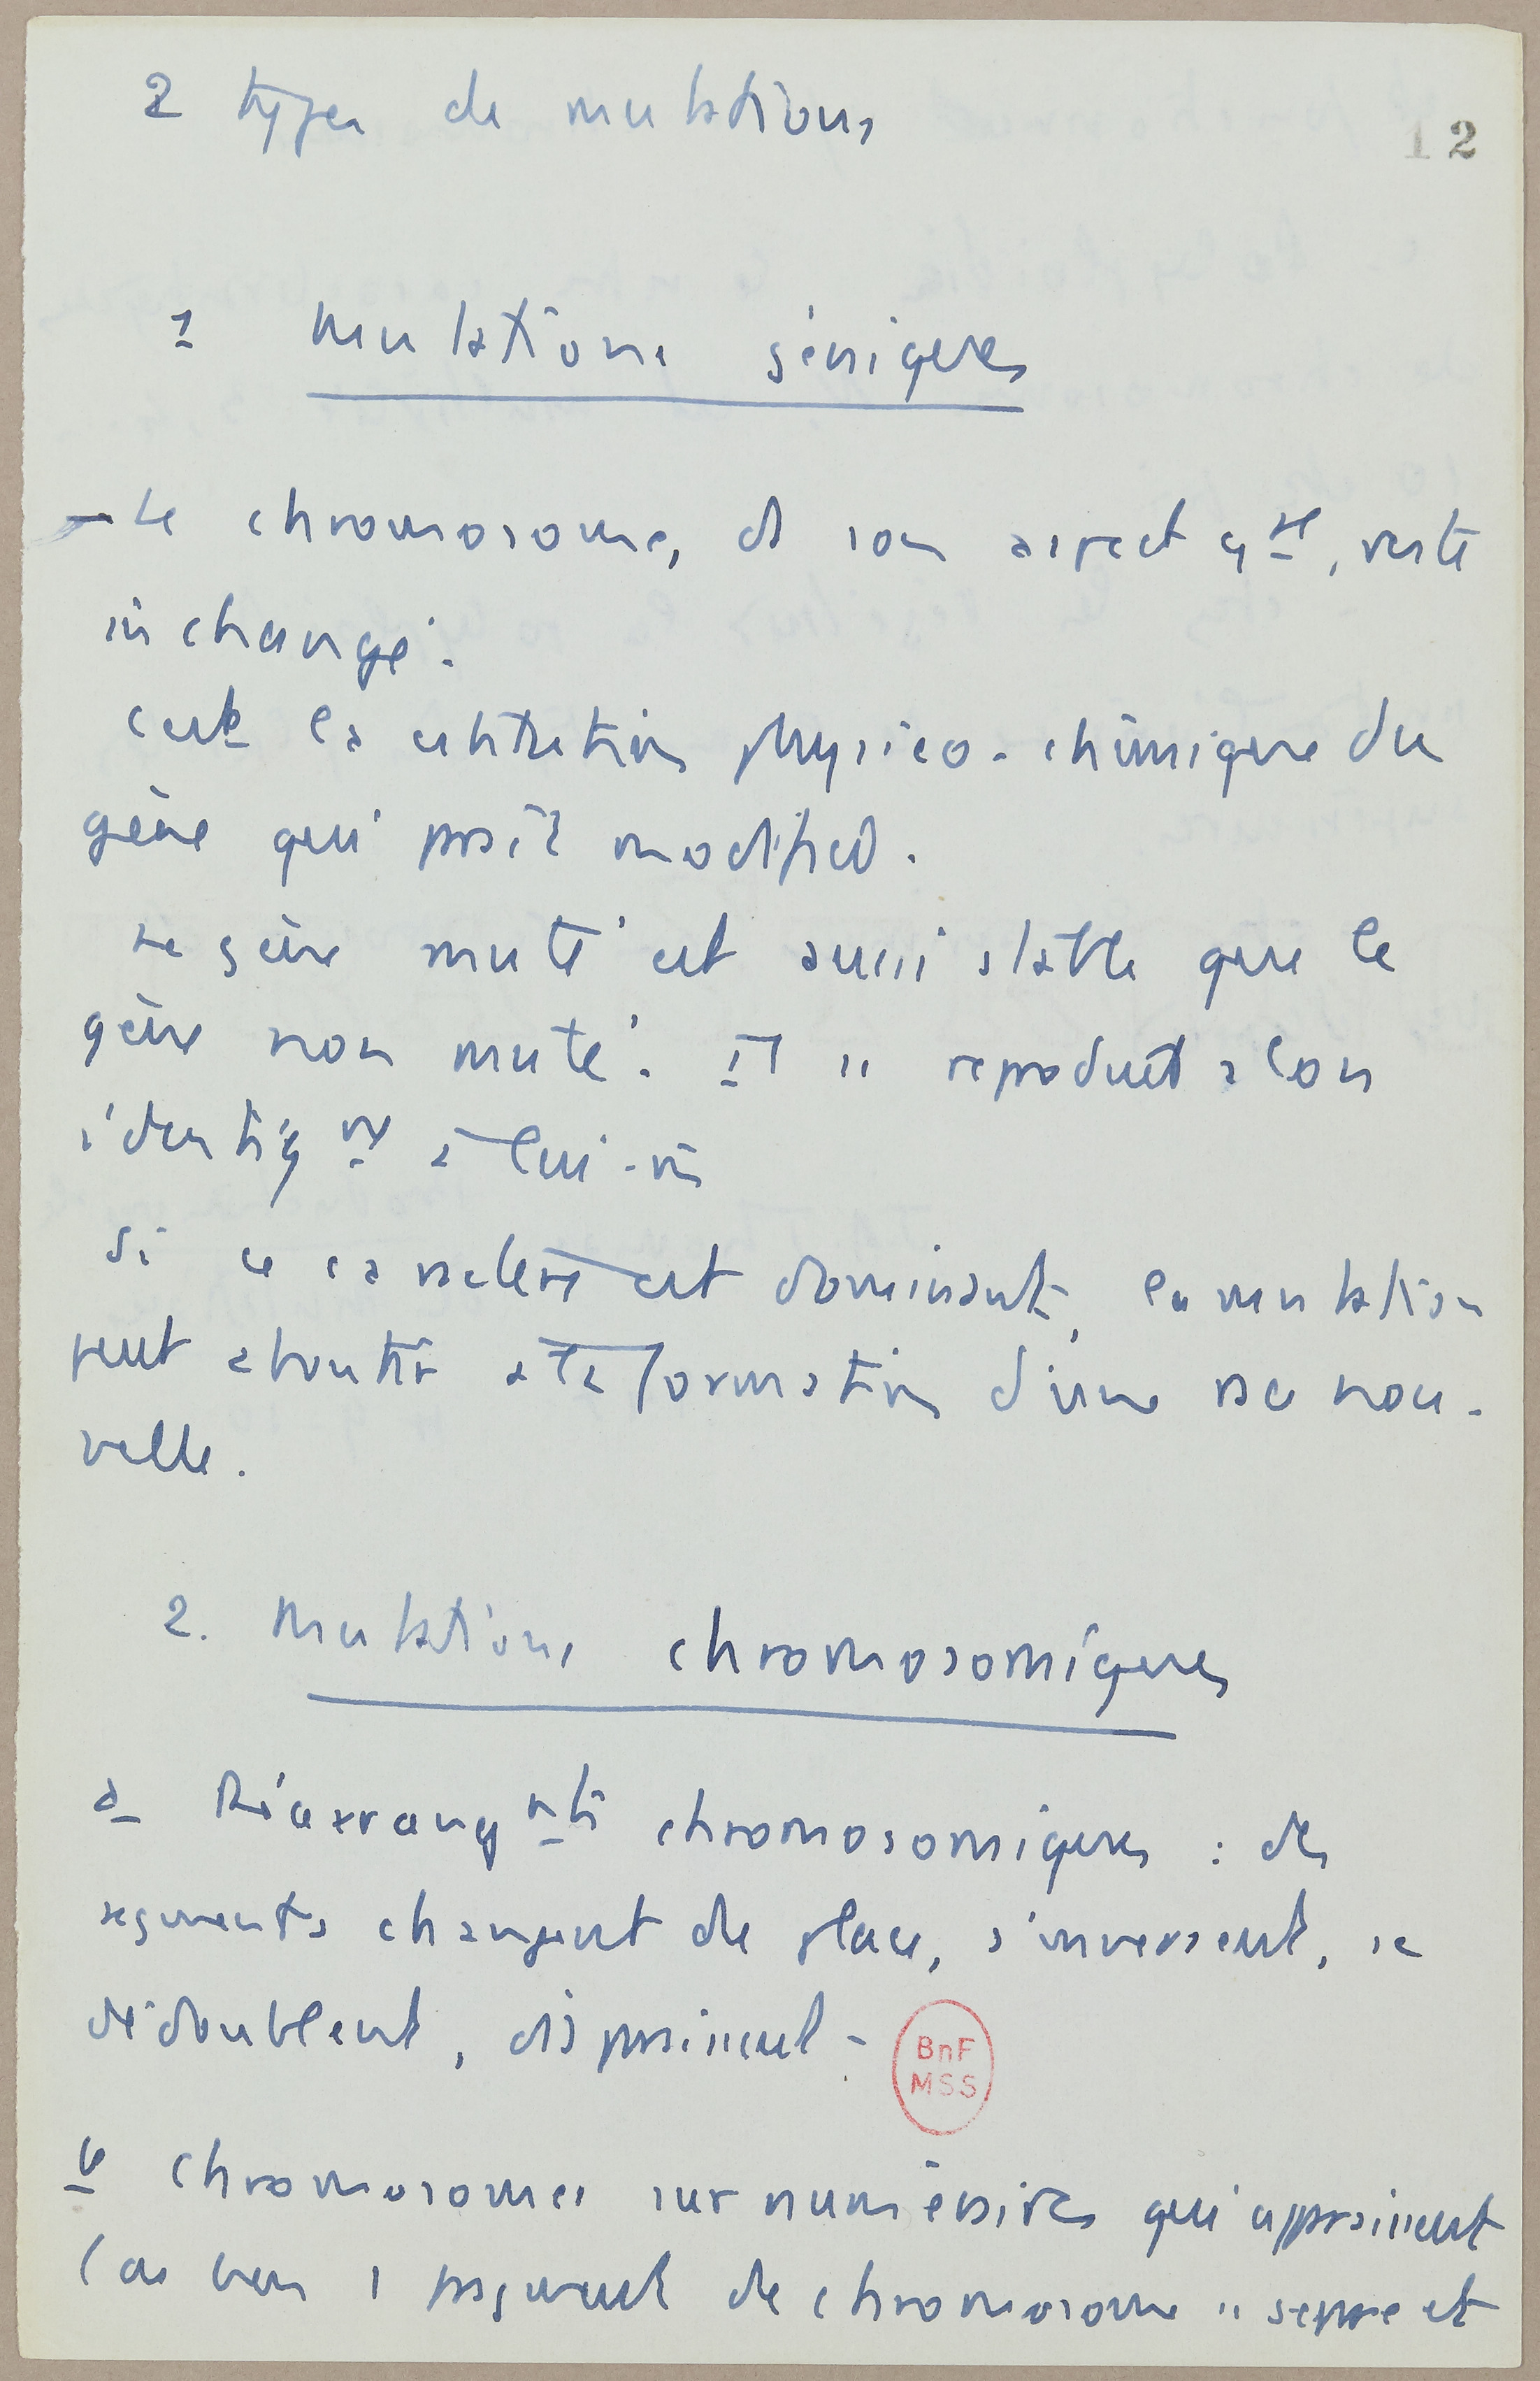 2 types de mutations
12
1 Mutations géniques
– Le chromosome, ds son aspect gal, reste
inchangé.
C'est la constitution physico-chimique du
gène qui paraît modifiée.
Le gène muté est aussi stable que le
gène non muté. Il se reproduit selon
identiqt à lui-m
Si ce caractère est dominant, la mutation
peut aboutir à la formation d'une race nou-
velle.
2. Mutations chromosomiques
a Réarrangmts chromosomiques : des
segments changent de place, s'inversent, se
dédoublent, disparaissent –
BnF
MSS
b Chromosomes surnuméraires qui apparaissent
(ou bien 1 fragment de chromosome se sépare et